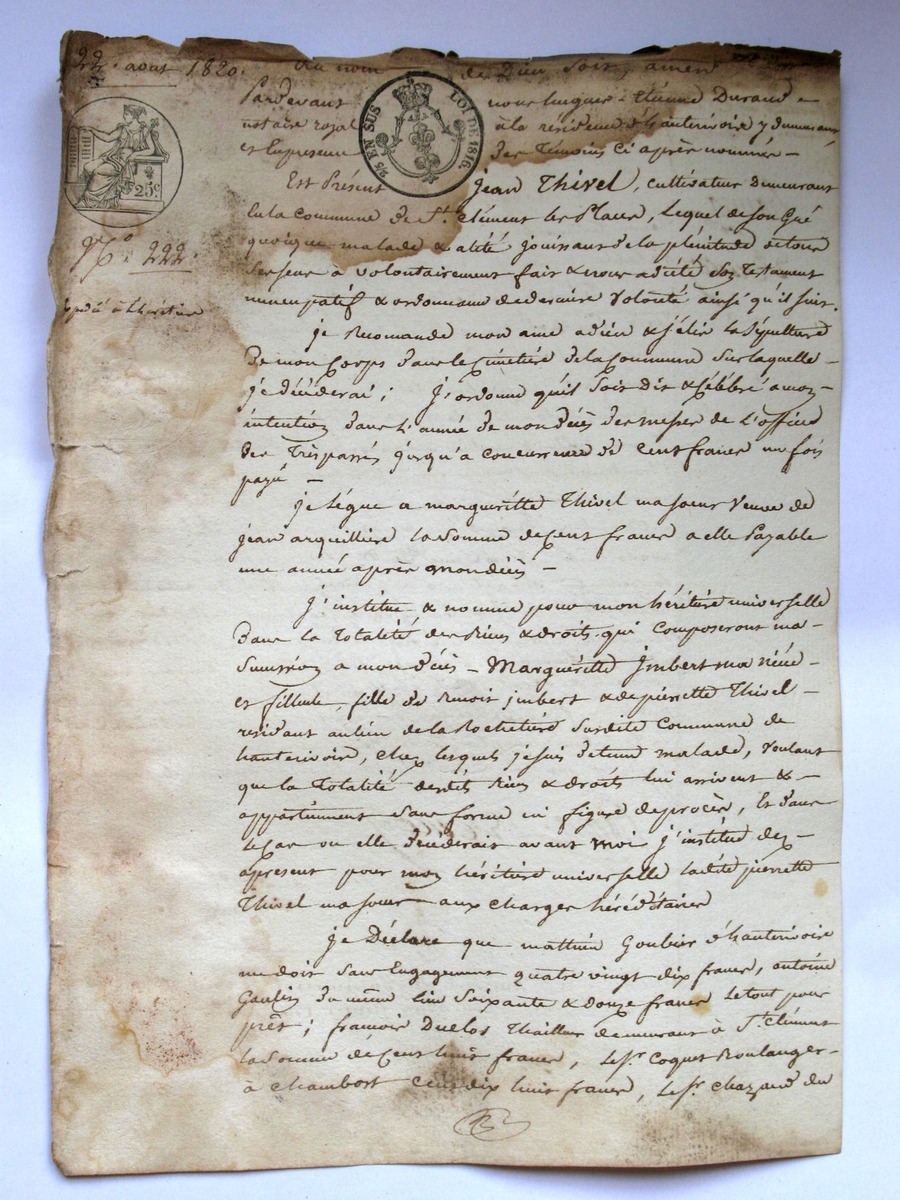 22. aout 1820.
Au nom de Dieu soit, amen
Pardevant nous hugues - Etienne Durand -
notaire royal à la résidence d'hauterivoire y demeurant
et En presence des Témoins Ci après nommés -
2/5 EN SUS
LOI DE 1816.
25c.
Est Présent jean Thivel, cultivateur demeurant
En la Commune de St. Clément les Places, lequel de son Gré
quoique malade & alité jouissant de la plénitude de tous
Ses sens a volontairement fait & nous a dicté son Testament
nuncupatif & ordonnance de derniere Volonté ainsi qu'il suit.
No. 222.
Expédié à l'héritiere
je Recomande mon ame a dieu & j'élis la Sépulture
de mon Corps dans le Cimetiére de la Commune Sur laquelle -
je décéderai; j'ordonne qu'il soit dit & Célébré a mon
intention dans L'année de mon décès des messes de L'office
des Trépassés jusqu'a concurrence de cent francs une fois
payé -
je Légue a margueritte Thivel ma soeur Veuve de
jean arquilliere la Somme de Cent francs a elle Payable
une année après mon décès -
j'institue & nomme pour mon héritiére universelle
Dans la Totalité des Biens & droits qui composeront ma -
Succession a mon décès - Margueritte jmbert ma niéce -
et filleule, fille de Benoit jmbert & de pierrette Thivel -
résidant au lieu de la Rochetiére susdite Commune de
hauterivoire, chez lesquels je suis detenu malade, voulant
que la Totalité desdits Biens & droits lui arrivent & -
appartiennent sans forme ni figure de procès, Et dans
le Cas ou elle décéderait avant moi j'institue dez -
apresent pour mon héritiére universelle ladite pierrette
Thivel ma soeur aux charges héréditaires
je Déclare que mathieu Goubier d'hauterivoire
me doit sans Engagement quatre vingt dix francs, antoine
Gaulin du même lieu Soixante & douze francs le tout pour
prêt; francois Duclos Thailleur demeurant à St. Clément
la Somme de Cent huit francs, le Sr. Coquet Boulanger -
à Chambost Cent dix huit francs, le Sr. Chazaud du